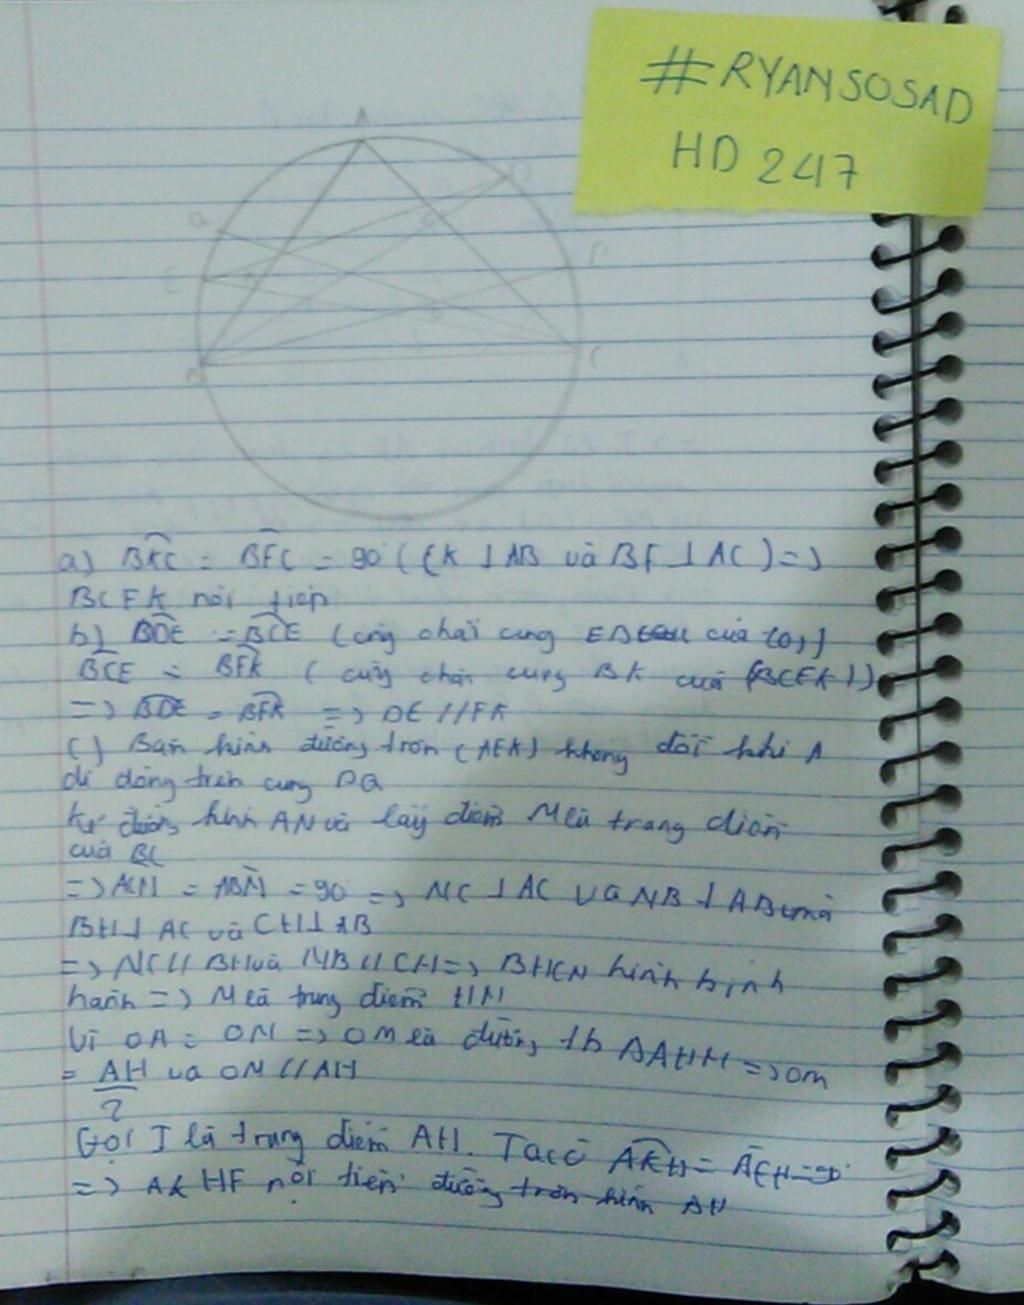 #RYANSOSAD
HD 247
A
Q
E
P
B
C
a) BKC = BFC = 90 (CK ⊥ AB và BF ⊥ AC) =>
BCFK nội tiếp
b) BDE = BCE (cùng chắn cung EB của (O))
BCE = BFK (cùng chắn cung BK của (BCFK))
=> BDE = BFK => DE // FK
c) Bán kính đường tròn (AFK) không đổi khi A
di động trên cung PQ
Kẻ đường kính AN và lấy điểm M là trung điểm
của BC
=> ACN = ABN = 90 => NC ⊥ AC và NB ⊥ AB mà
BH ⊥ AC và CH ⊥ AB
=> NC // BH và NB // CH => BHCN hình bình
hành => M là trung điểm HN
Vì OA = ON => OM là đường tb ΔAHN => OM
= AH/2 và OM // AH
Gọi I là trung điểm AH. Ta có AKH = AFH = 90
=> AKHF nội tiếp đường tròn kính AH